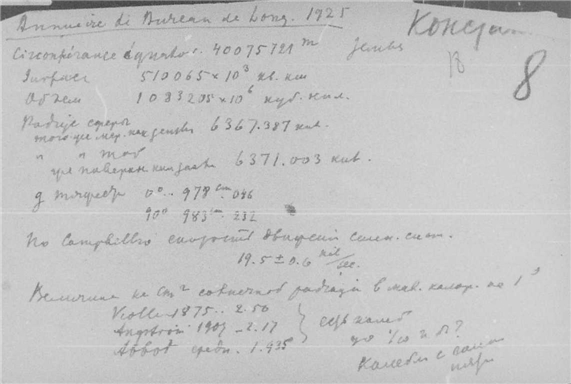 Annuaire de Bureau de Long. 1925
Констан
Circonférence équator. 40075721 m Земля
8
Surface 510065 × 10³ кв. км
Объем 1083205 × 10⁶ куб. кил.
Радиус сферы
того же мер. как земля 6367.387 кил.
" " той
же поверхн. как земля 6371.003 кил.
g 0° .. 978 cm. 046
90° 983 cm. 232
По Campbell скорость движения солн. сист.
19.5 ± 0.6 кил/сек.
Величина на cm² солнечной радиации в мал. калор. по 1
Violle 1875 .. 2.50
Angström 1907 - 2.17
Abbot средн. 1.935
есть колеб
до 1/10 и ?
Колебл с